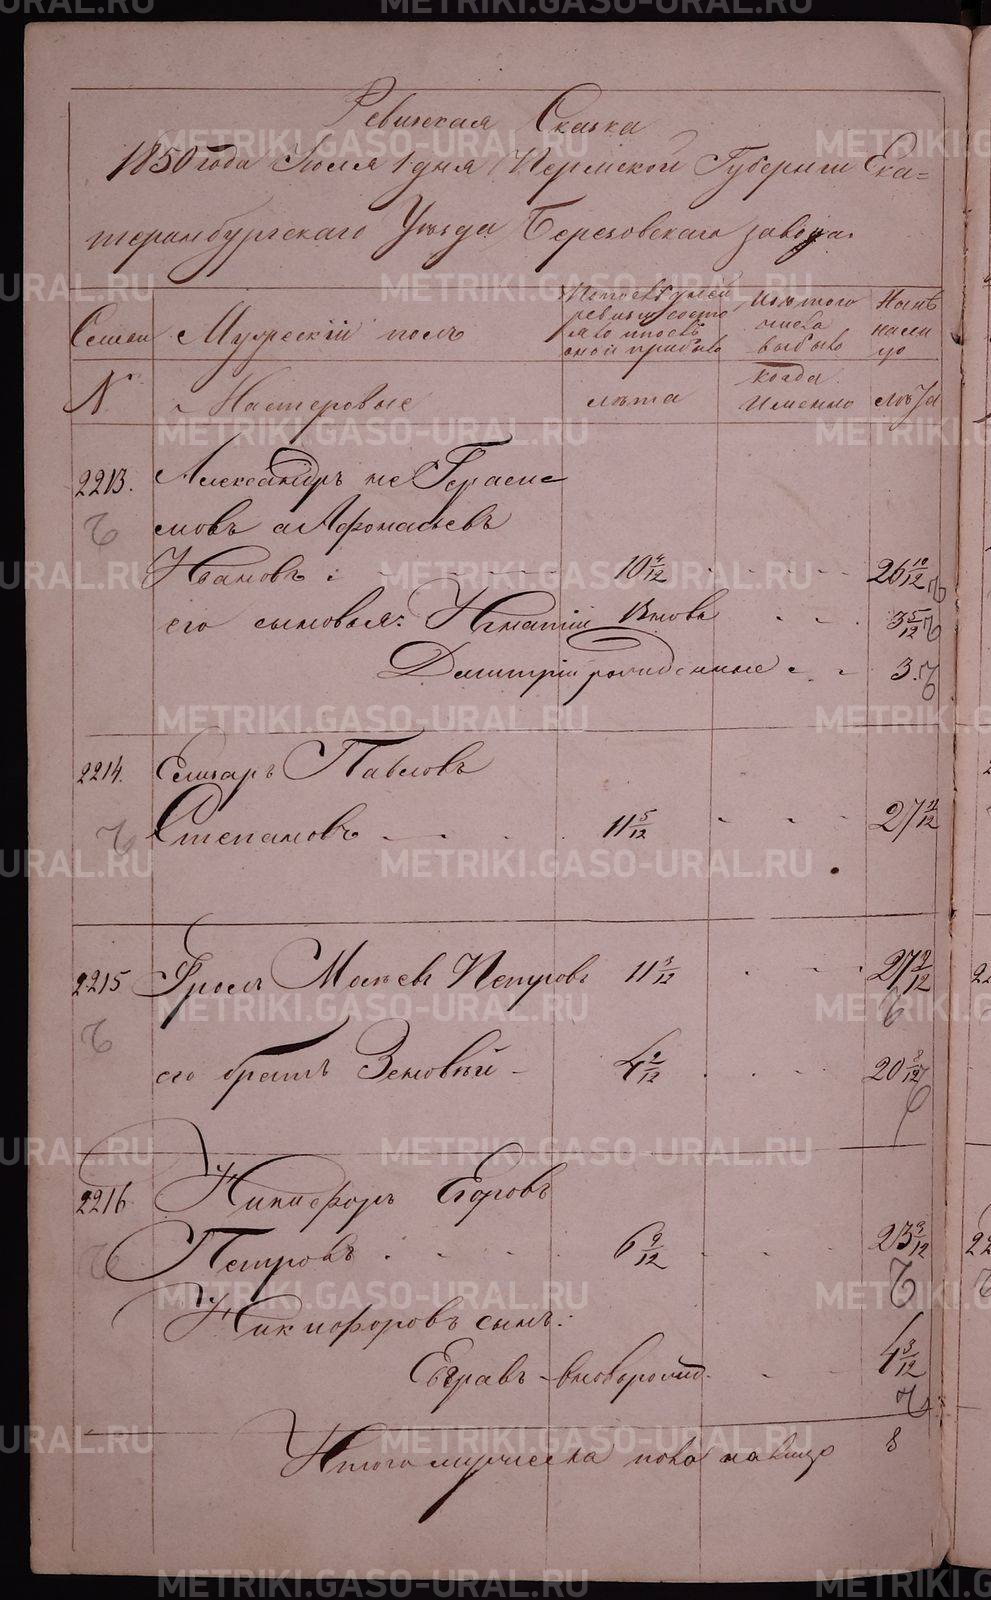 Ревизская Сказка
1850 года Июля 1 дня Пермской Губернiи Ека=
теринбургскаго Уѣзда Березовскаго завода.
Семьи
Мужескiй полъ
Изъ того
числа
выбыло
Нынѣ
на лицо
№
Мастеровые
лѣта
когда
Именно
лѣта
2213.
Александръ не Гераси=
мовъ а Афонасьевъ
Ивановъ 10 4/12 26 10/12
его сыновья: Игнатiй Вновь 3 5/12
Дмитрiй рожденные 3.
2214.
Елизаръ Павловъ
Степановъ 11 5/12 27 11/12
2215 Фролъ Моисѣевъ Петровъ 11 3/12 27 9/12
его братъ Зеновiй 4 2/12 20 8/12
2216. Никифоръ Егоровъ
Петровъ 6 9/12 23 9/12
Никифоровъ сынъ:
Евграфъ - вноворожд. 4 3/12
Итого мужеска пола на лицо 8
METRIKI.GASO-URAL.RU